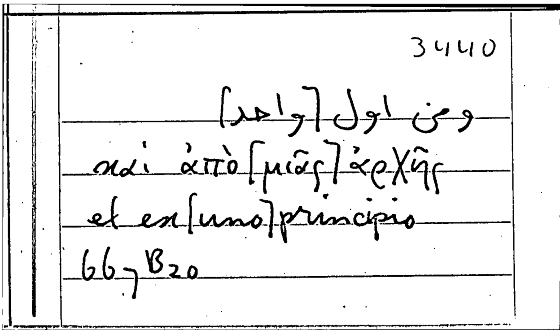 3440
ومن اول [واحد]
καὶ ἀπὸ [μιᾶς] ἀρχῆς
et ex [uno] principio
667 B20